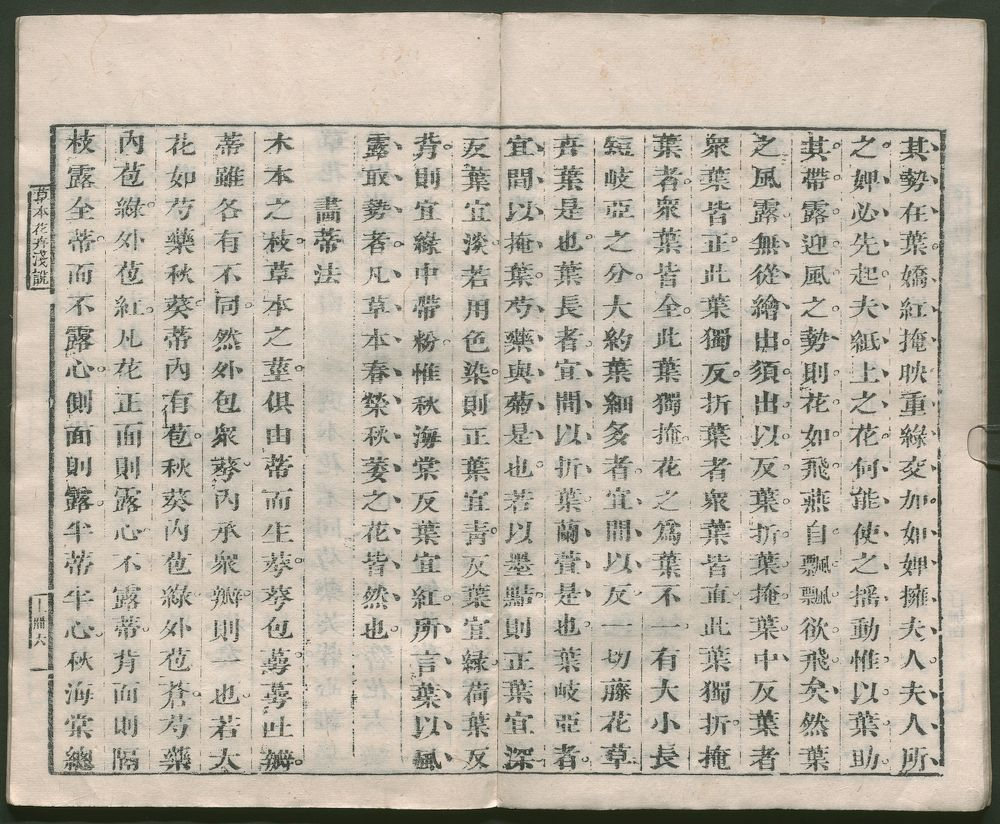 其勢在葉嬌紅掩映重綠交加如婢擁夫人夫人所
之婢必先起夫紙上之花何能使之搖動惟以葉助
其帶露迎風之勢則花如飛燕自飄飄欲飛矣然葉
之風露無從繪出須出以反葉折葉掩葉中反葉者
衆葉皆正此葉獨反折葉者衆葉皆直此葉獨折掩
葉者衆葉皆全此葉獨掩花之爲葉不一有大小長
短岐亞之分大約葉細多者宜間以反一切藤花草
卉葉是也葉長者宜間以折葉蘭萱是也葉岐亞者
宜間以掩葉芍藥與菊是也若以墨點則正葉宜深
反葉宜淡若用色染則正葉宜青反葉宜綠荷葉反
背則宜綠中帶粉惟秋海棠反葉宜紅所言葉以風
露取勢者凡草本春榮秋萎之花皆然也
畫蒂法
木本之枝草本之莖俱由蒂而生蕚蕚包蕚蕚吐瓣
蒂雖各有不同然外包衆蕚內承衆瓣則一也若大
花如芍藥秋葵蒂內有苞秋葵內苞綠外苞蒼芍藥
內苞綠外苞紅凡花正面則露心不露蒂背面則隔
枝露全蒂而不露心側面則露半蒂半心秋海棠總
草本花卉淺說
上冊六